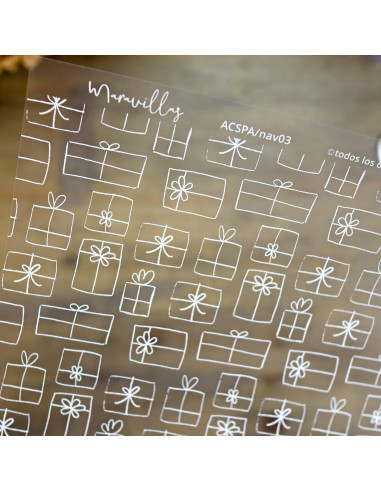 Maravillas
ACSPA/nav03
©todos los d